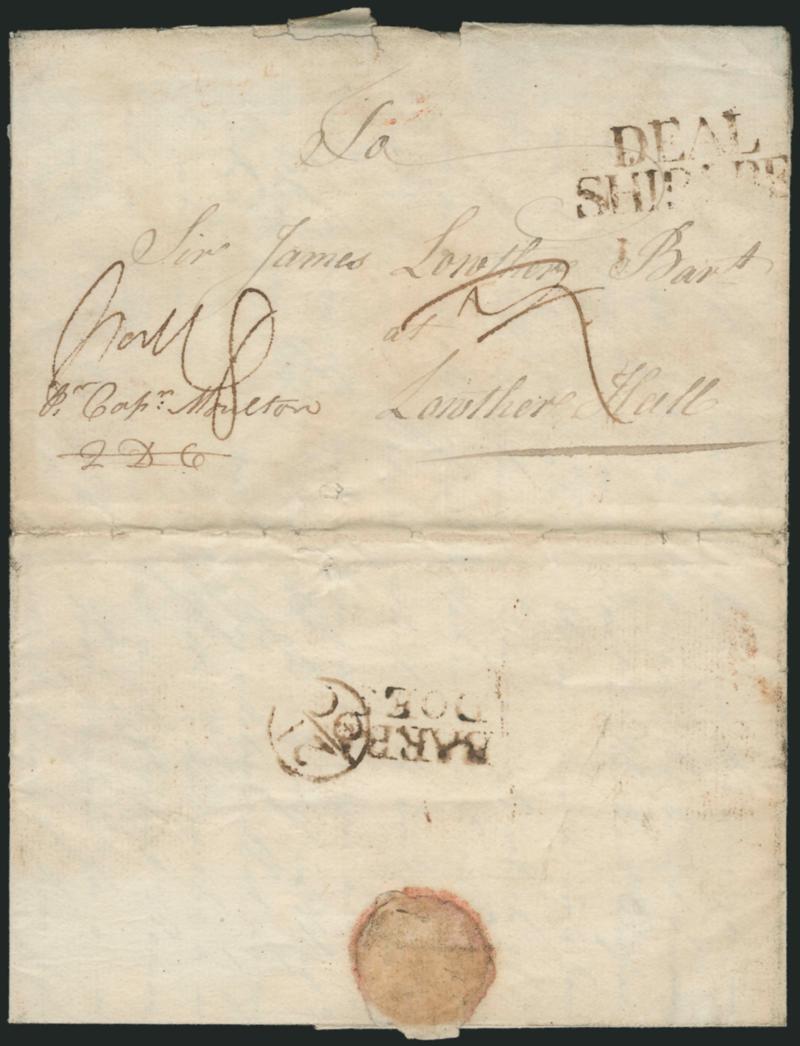 To
DEAL
SHIP LRE
Sir James Lowther Bart
at
Lowther Hall
8
Pr Capn Moulton
Q D C
BARBA
DOES